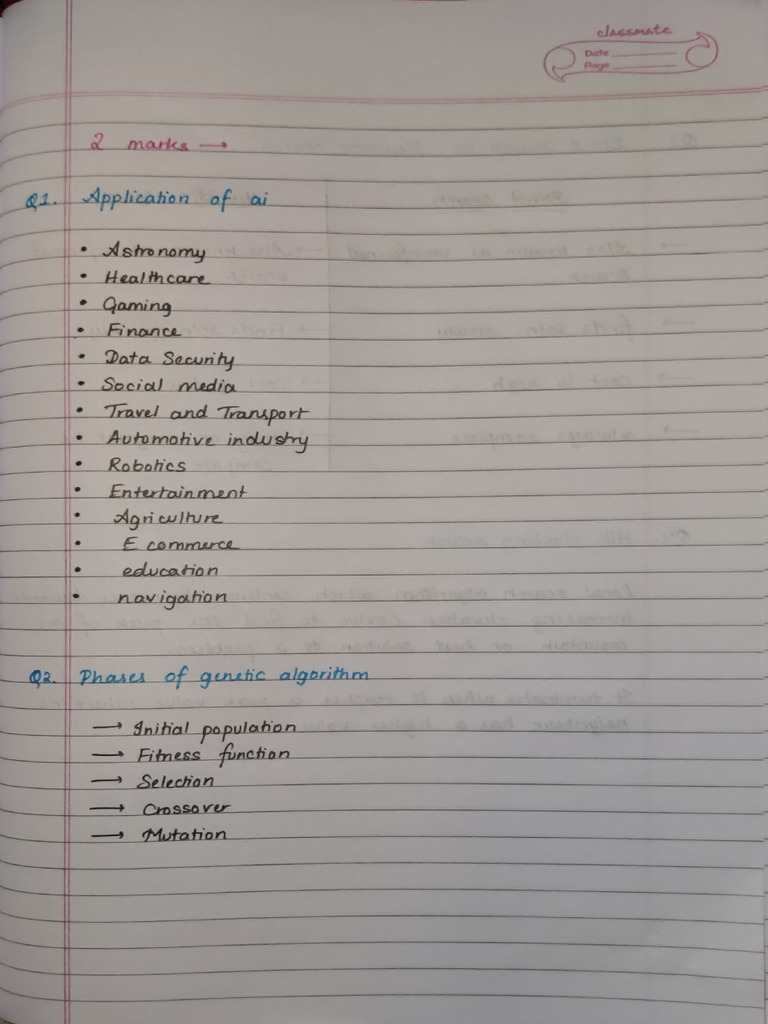 classmate
Date
Page
2 marks →
Q1. Application of ai
• Astronomy
• Healthcare
• Gaming
• Finance
• Data Security
• Social media
• Travel and Transport
• Automotive industry
• Robotics
• Entertainment
• Agriculture
• E commerce
• education
• navigation
Q2. Phases of genetic algorithm
→ Initial population
→ Fitness function
→ Selection
→ Crossover
→ Mutation